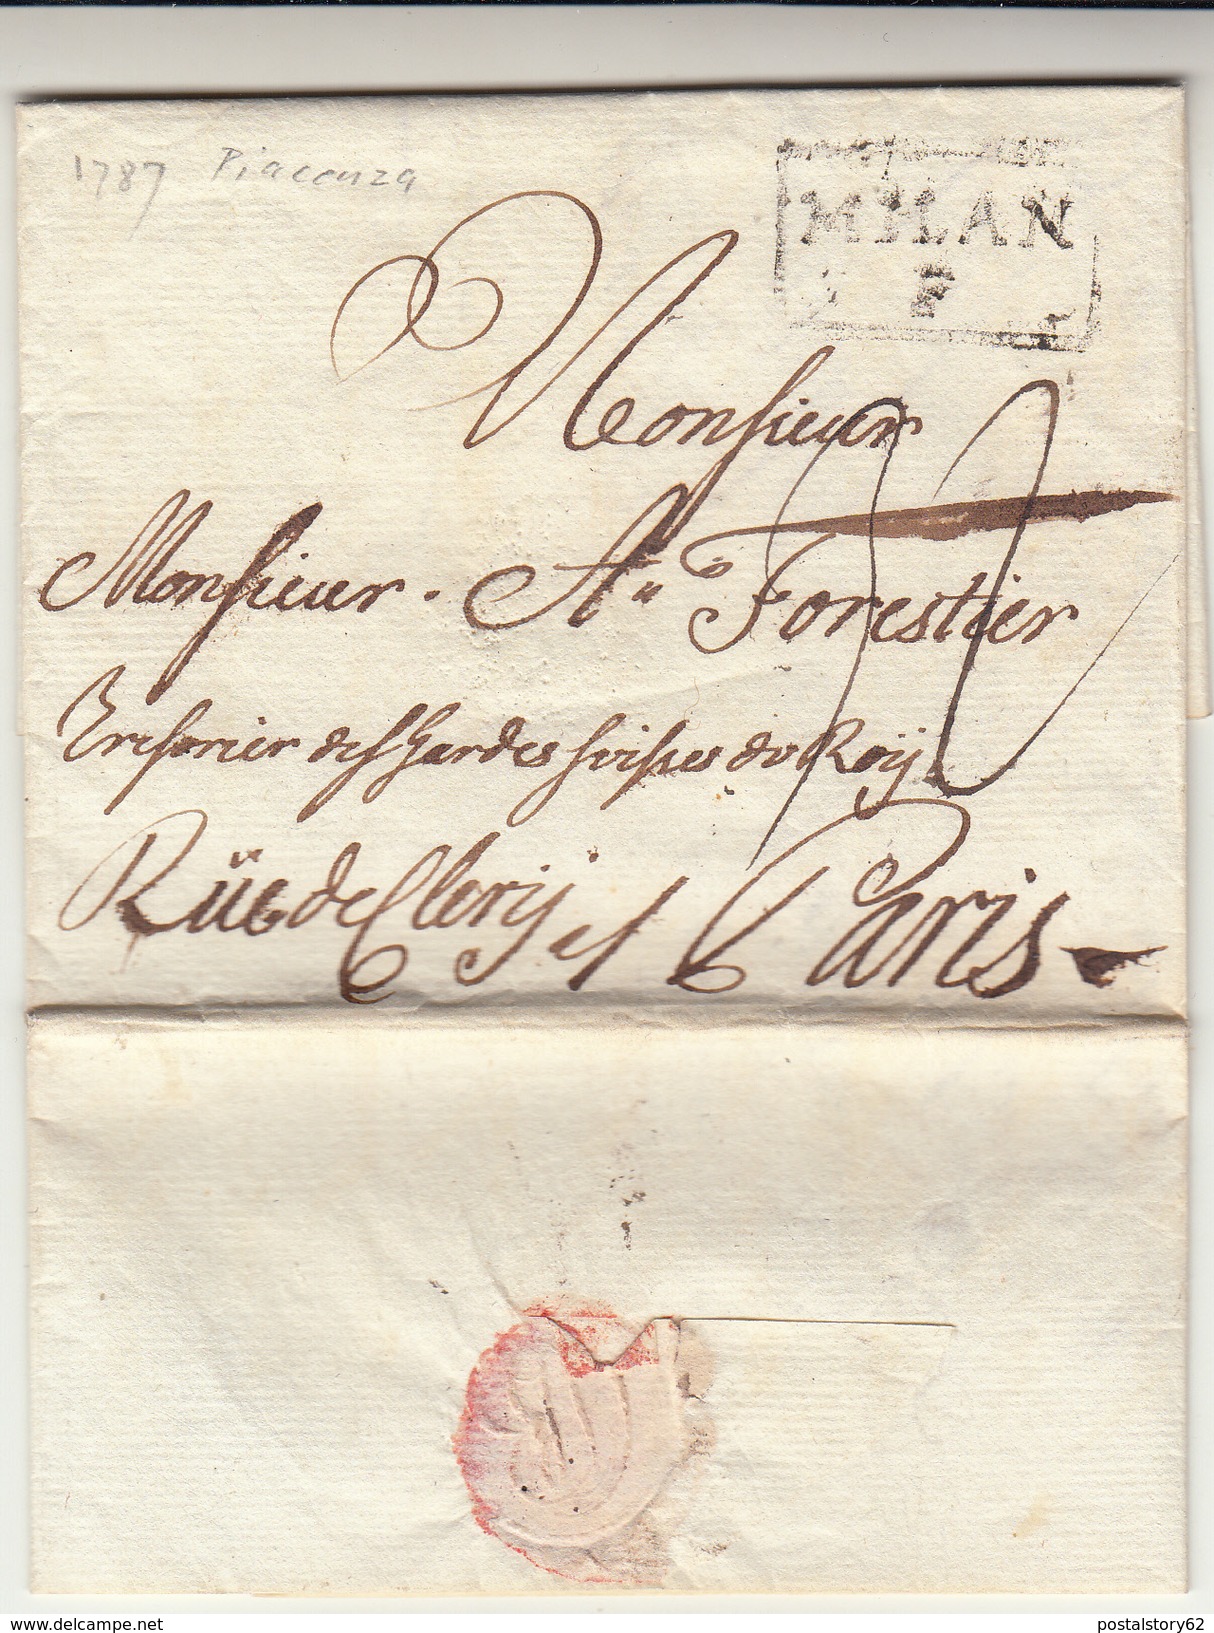 1787 Piacenza
MILAN
F
Monsieur
Monsieur. A.n Forestier
Tresorier des Gardes suisses du Roÿ
Rüe de Clerÿ à Paris
delcampe.net
postalstory62